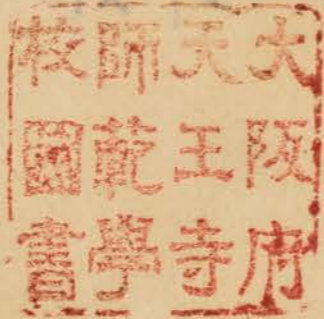 大阪府
天王寺
師範學
校圖書